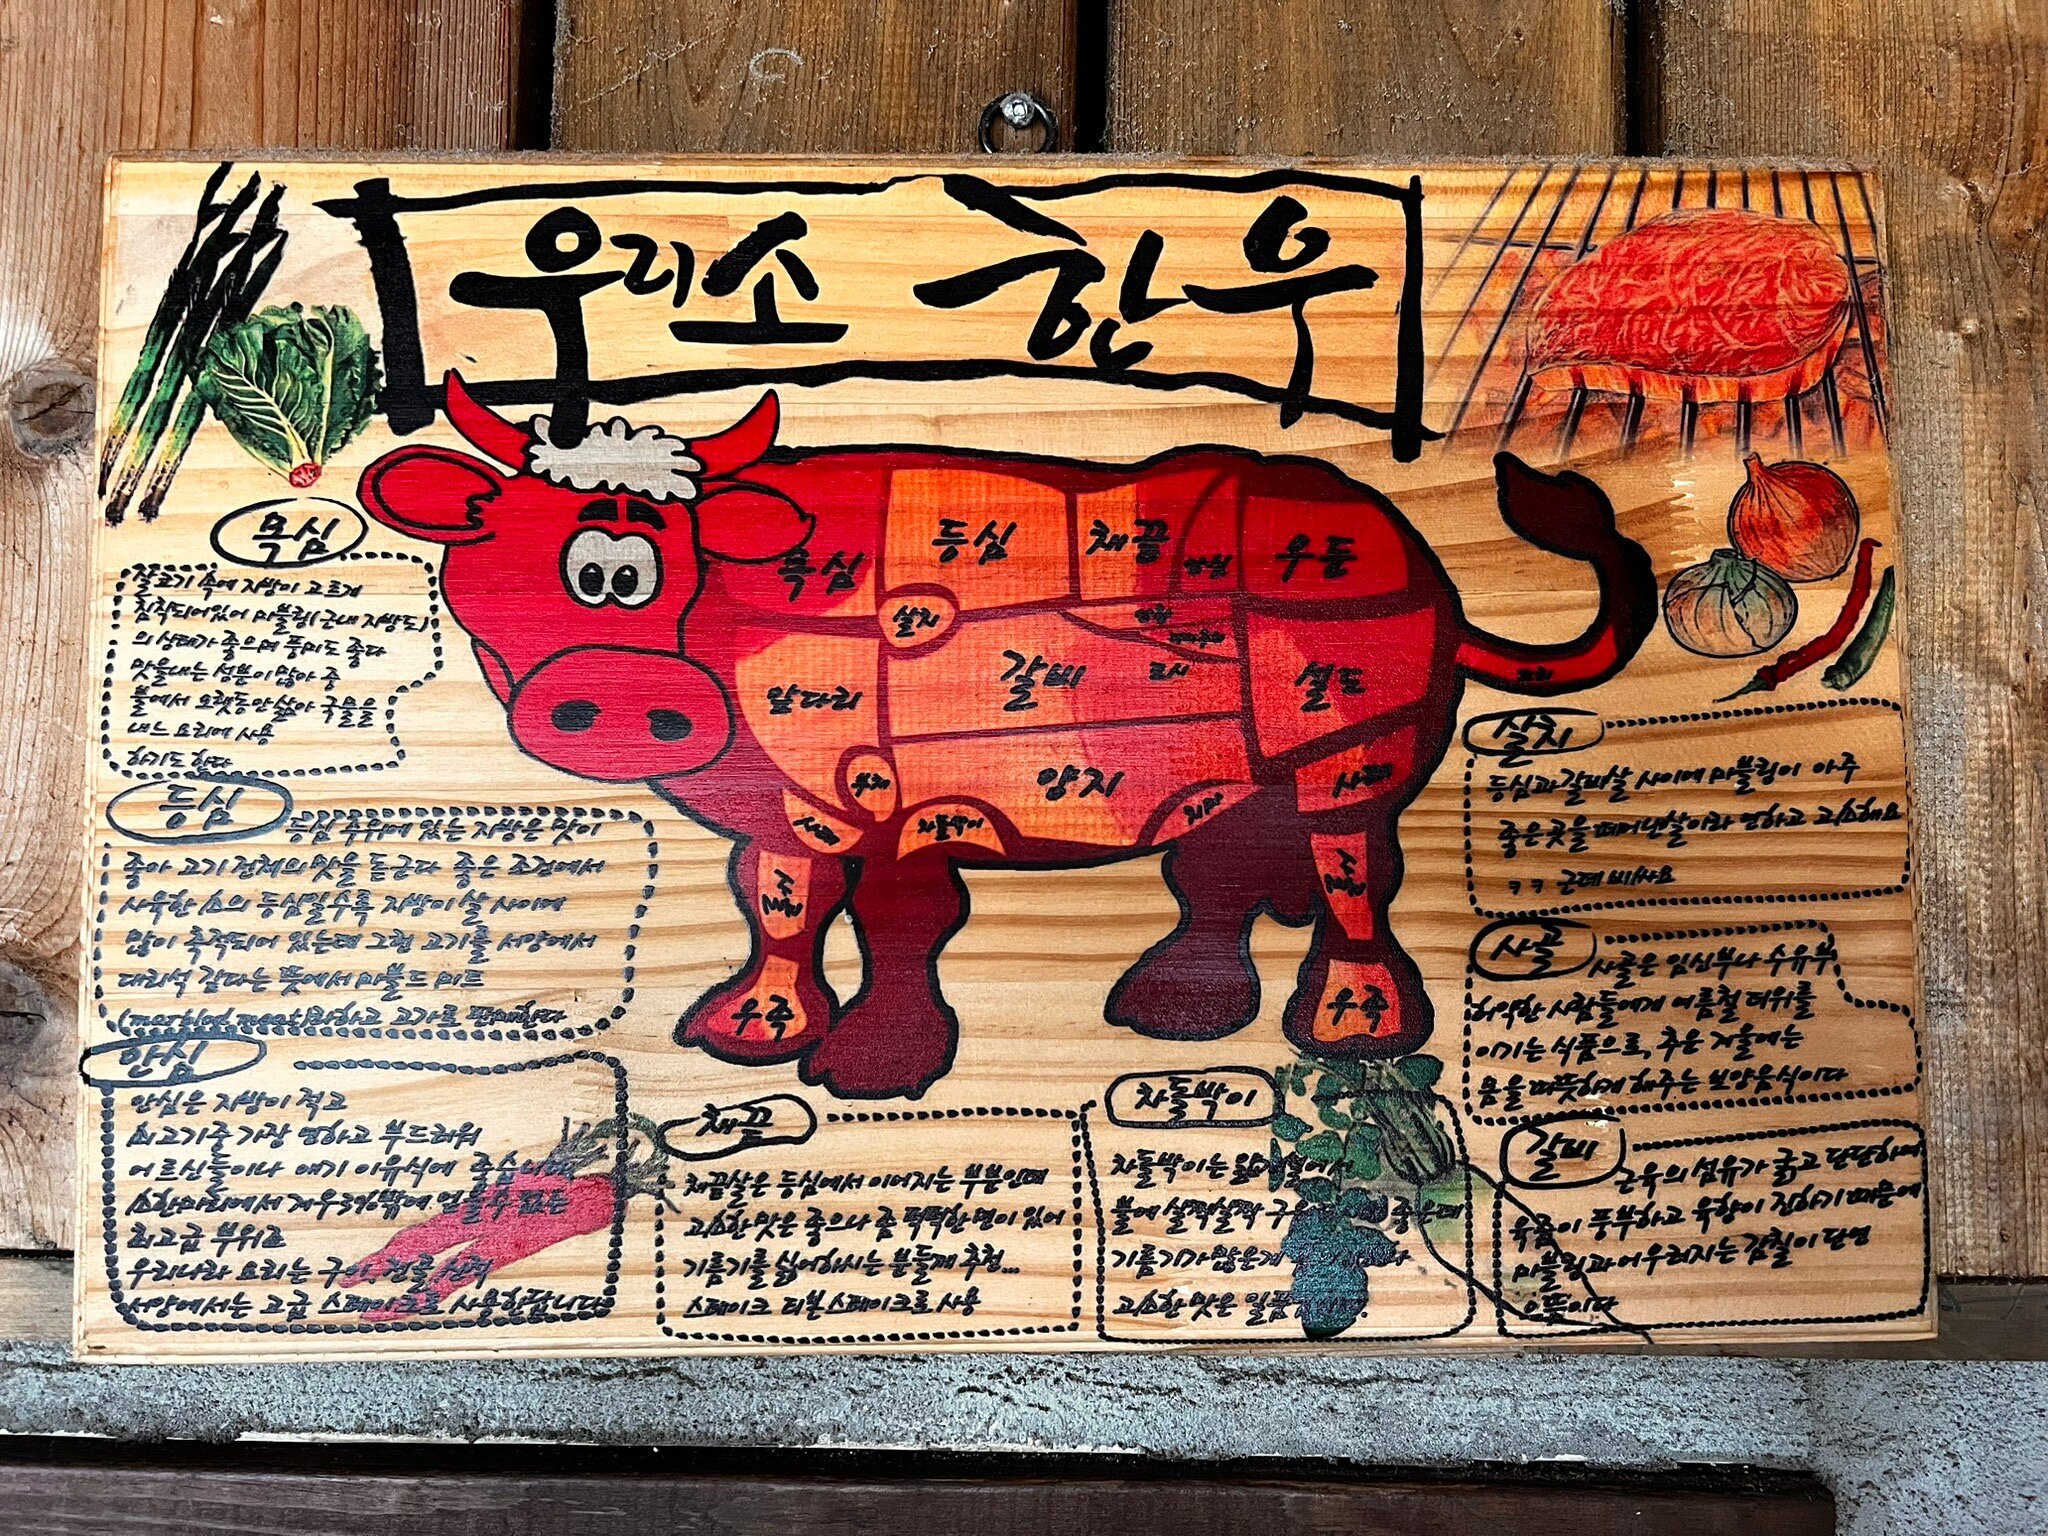 우리소 한우
목심
살코기 속에 지방이 고르게
침착되어있어 마블링(근내지방도)
의 상태가 좋으며 풍미도 좋다
맛을내는 성분이 많아 중
불에서 오랫동안 삶아 국물을
내는 요리에 사용
하기도 한다
등심
등심 주위에 있는 지방은 맛이
좋아 고기 전체의 맛을 돋군다 좋은 조건에서
사육한 소의 등심일수록 지방이 살 사이에
많이 축적되어 있는데 그런 고기를 서양에서
대리석 같다는 뜻에서 마블드 미트
하고 고가로 판매한다
안심
안심은 지방이 적고
쇠고기중 가장 연하고 부드러워
어르신들이나 애기 이유식에 좋습니다
소한마리에서 겨우3%밖에 얻을수 없는
최고급 부위로
우리나라 요리는 구이, 전골, 산적
서양에서는 고급 스테이크로 사용한답니다
목심
등심
채끝
안심
우둔
살치
앞다리
갈비
설도
부채
양지
치마
사태
사태
차돌박이
사골
사골
우족
우족
꼬리
채끝
채끝살은 등심에서 이어지는 부분인데
고소한 맛은 좋으나 좀 퍽퍽한 면이 있어
기름기를 싫어하시는 분들께 추천...
스테이크 티본스테이크로 사용
차돌박이
차돌박이는 얇게썰어서
불에 살짝살짝 좋은데
기름기가 많은게
고소한 맛은 일품
살치
등심과 갈비살 사이에 마블링이 아주
좋은곳을 떼어낸살이라 연하고 고소해요
ㅋㅋ 근데 비싸요
사골
사골은 임신부나 수유부
허약한 사람들에게 여름철 더위를
이기는 식품으로, 추운 겨울에는
몸을 따뜻하게 해주는 보양음식이다
갈비
근육의 섬유가 굵고 단단하며
육즙이 풍부하고 육향이 진하기 때문에
마블링과 어우러지는 감칠이 단연
으뜸이다